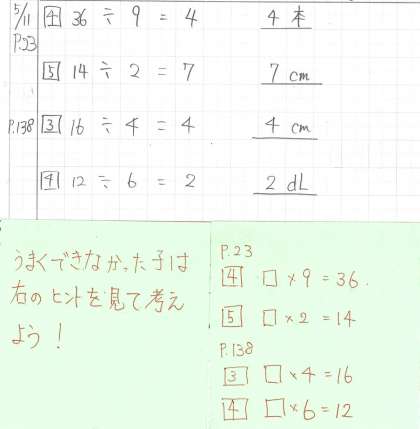 5/11 4 36 ÷ 9 = 4 4本
P.23
5 14 ÷ 2 = 7 7 cm
P.138 3 16 ÷ 4 = 4 4 cm
4 12 ÷ 6 = 2 2 dL
うまくできなかった子は
右のヒントを見て考え
よう!
P.23
4 □×9=36.
5 □×2=14
P.138
3 □×4=16
4 □×6=12